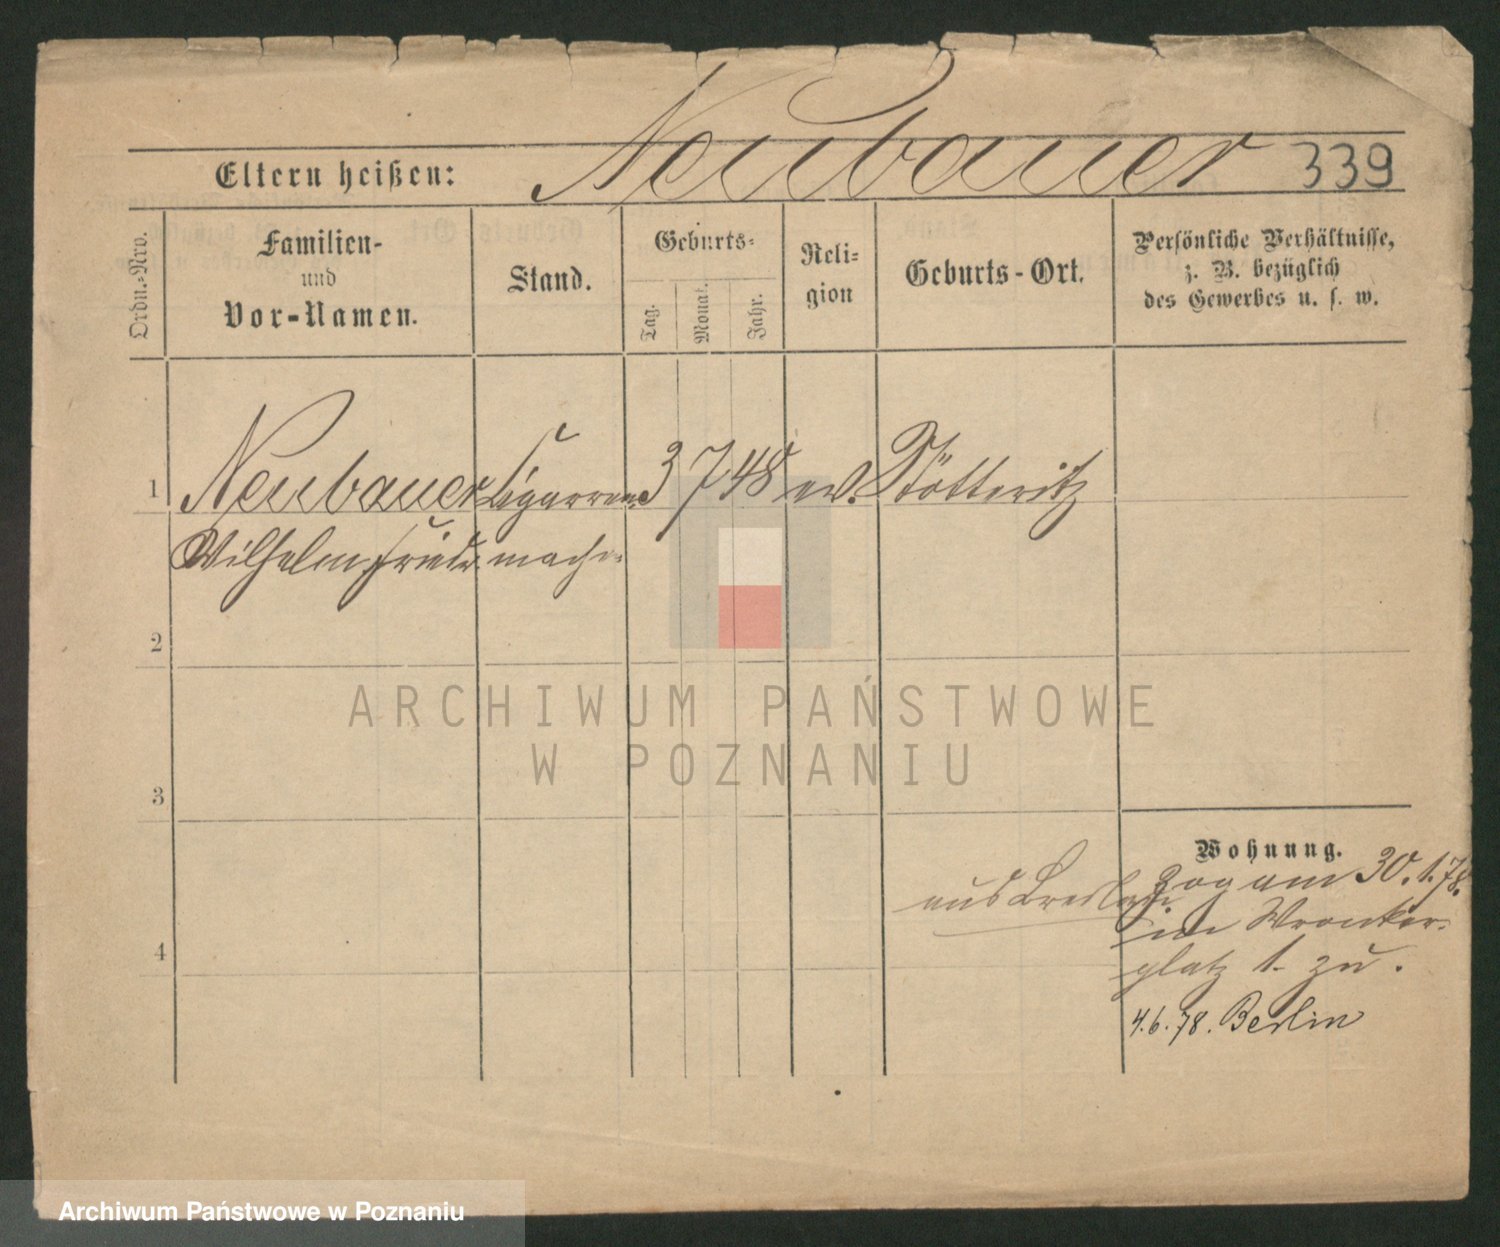 Neubauer 339
Eltern heißen:
Ordn.-Nro.
Familien-
und
Vor-Namen.
Stand.
Geburts-
Tag.
Monat.
Jahr.
Reli-
gion
Geburts-Ort.
Persönliche Verhältnisse,
z. B. bezüglich
des Gewerbes u. s. w.
1 Neubauer Cigarren- 3 7 48 ev. Stötteritz
Wilhelm Friedr. mach
2
ARCHIWUM PAŃSTWOWE
W POZNANIU
3
Wohnung.
aus Breslau
Zog am 30.1.78.
im Wronker-
platz 1. zu.
4
4.6.78. Berlin
Archiwum Państwowe w Poznaniu